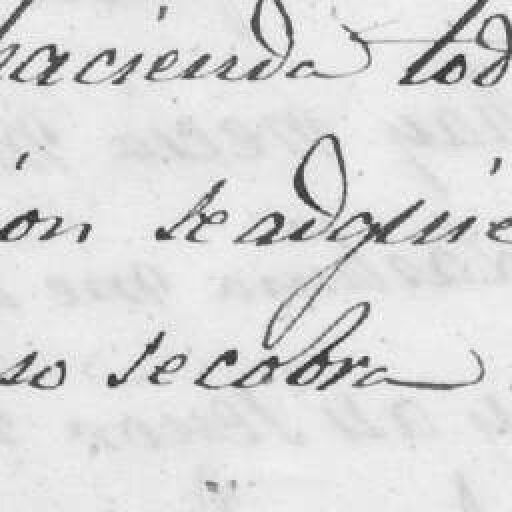 hacienda tod
ion se adquie
so se cobra